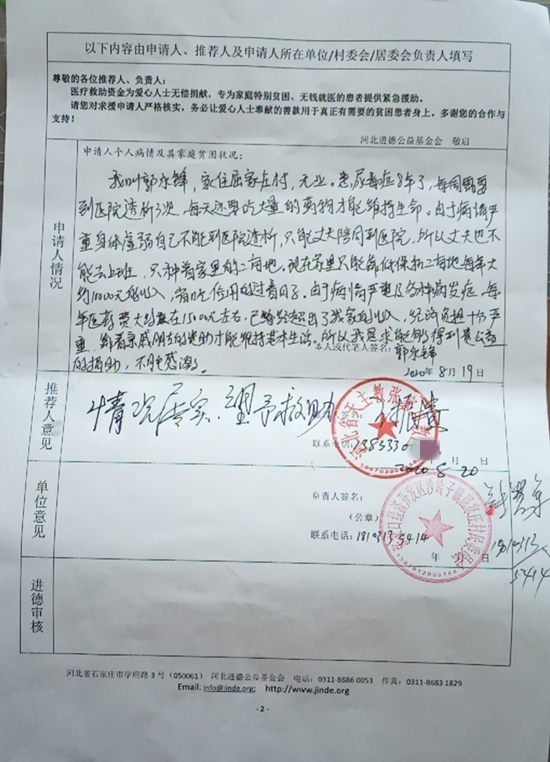 以下内容由申请人、推荐人及申请人所在单位/村委会/居委会负责人填写
尊敬的各位推荐人、负责人：
医疗救助资金为爱心人士无偿捐献，专为家庭特别贫困、无钱就医的患者提供紧急援助。
请您对求援申请人严格核实，务必让爱心人士奉献的善款用于真正有需要的贫困患者身上，多谢您的合作与
支持！
河北进德公益基金会 敬启
申请人情况
申请人个人病情及其家庭贫困状况：
我叫郭永锋，家住屈家庄村，无业。患尿毒症8年了，每周需要
到医院透析3次，每天还要吃大量的药物才能维持生命。由于病情严
重身体虚弱自己不能到医院透析，只能丈夫陪同到医院，所以丈夫也不
能去上班，只种着家里的二亩地，现在家里只能靠低保和二亩地每年大
约10000元的收入，省吃俭用的过着日子。由于病情严重及各种病发症，每
年医药费大约要在15000元左右，已经超出了我家的收入，经济负担十分严
重，靠着亲戚朋友的资助才能维持基本生活。所以我恳求能够得到贵公益
的捐助，不胜感激。
本人或代笔人签名：郭永锋
2020年8月19日
推荐人意见
情况属实，望予救助
联系电话：1385330
月 日
2020-8-20
单位意见
负责人签名：
（公章）
联系电话：18103135414
年 日
1810313
5414
进德审核
河北省石家庄市学府路3号（050061） 河北进德公益基金会 电话：0311-8686 0053 传真：0311-8683 1829
Email: info@jinde.org; http://www.jinde.org
- 2 -